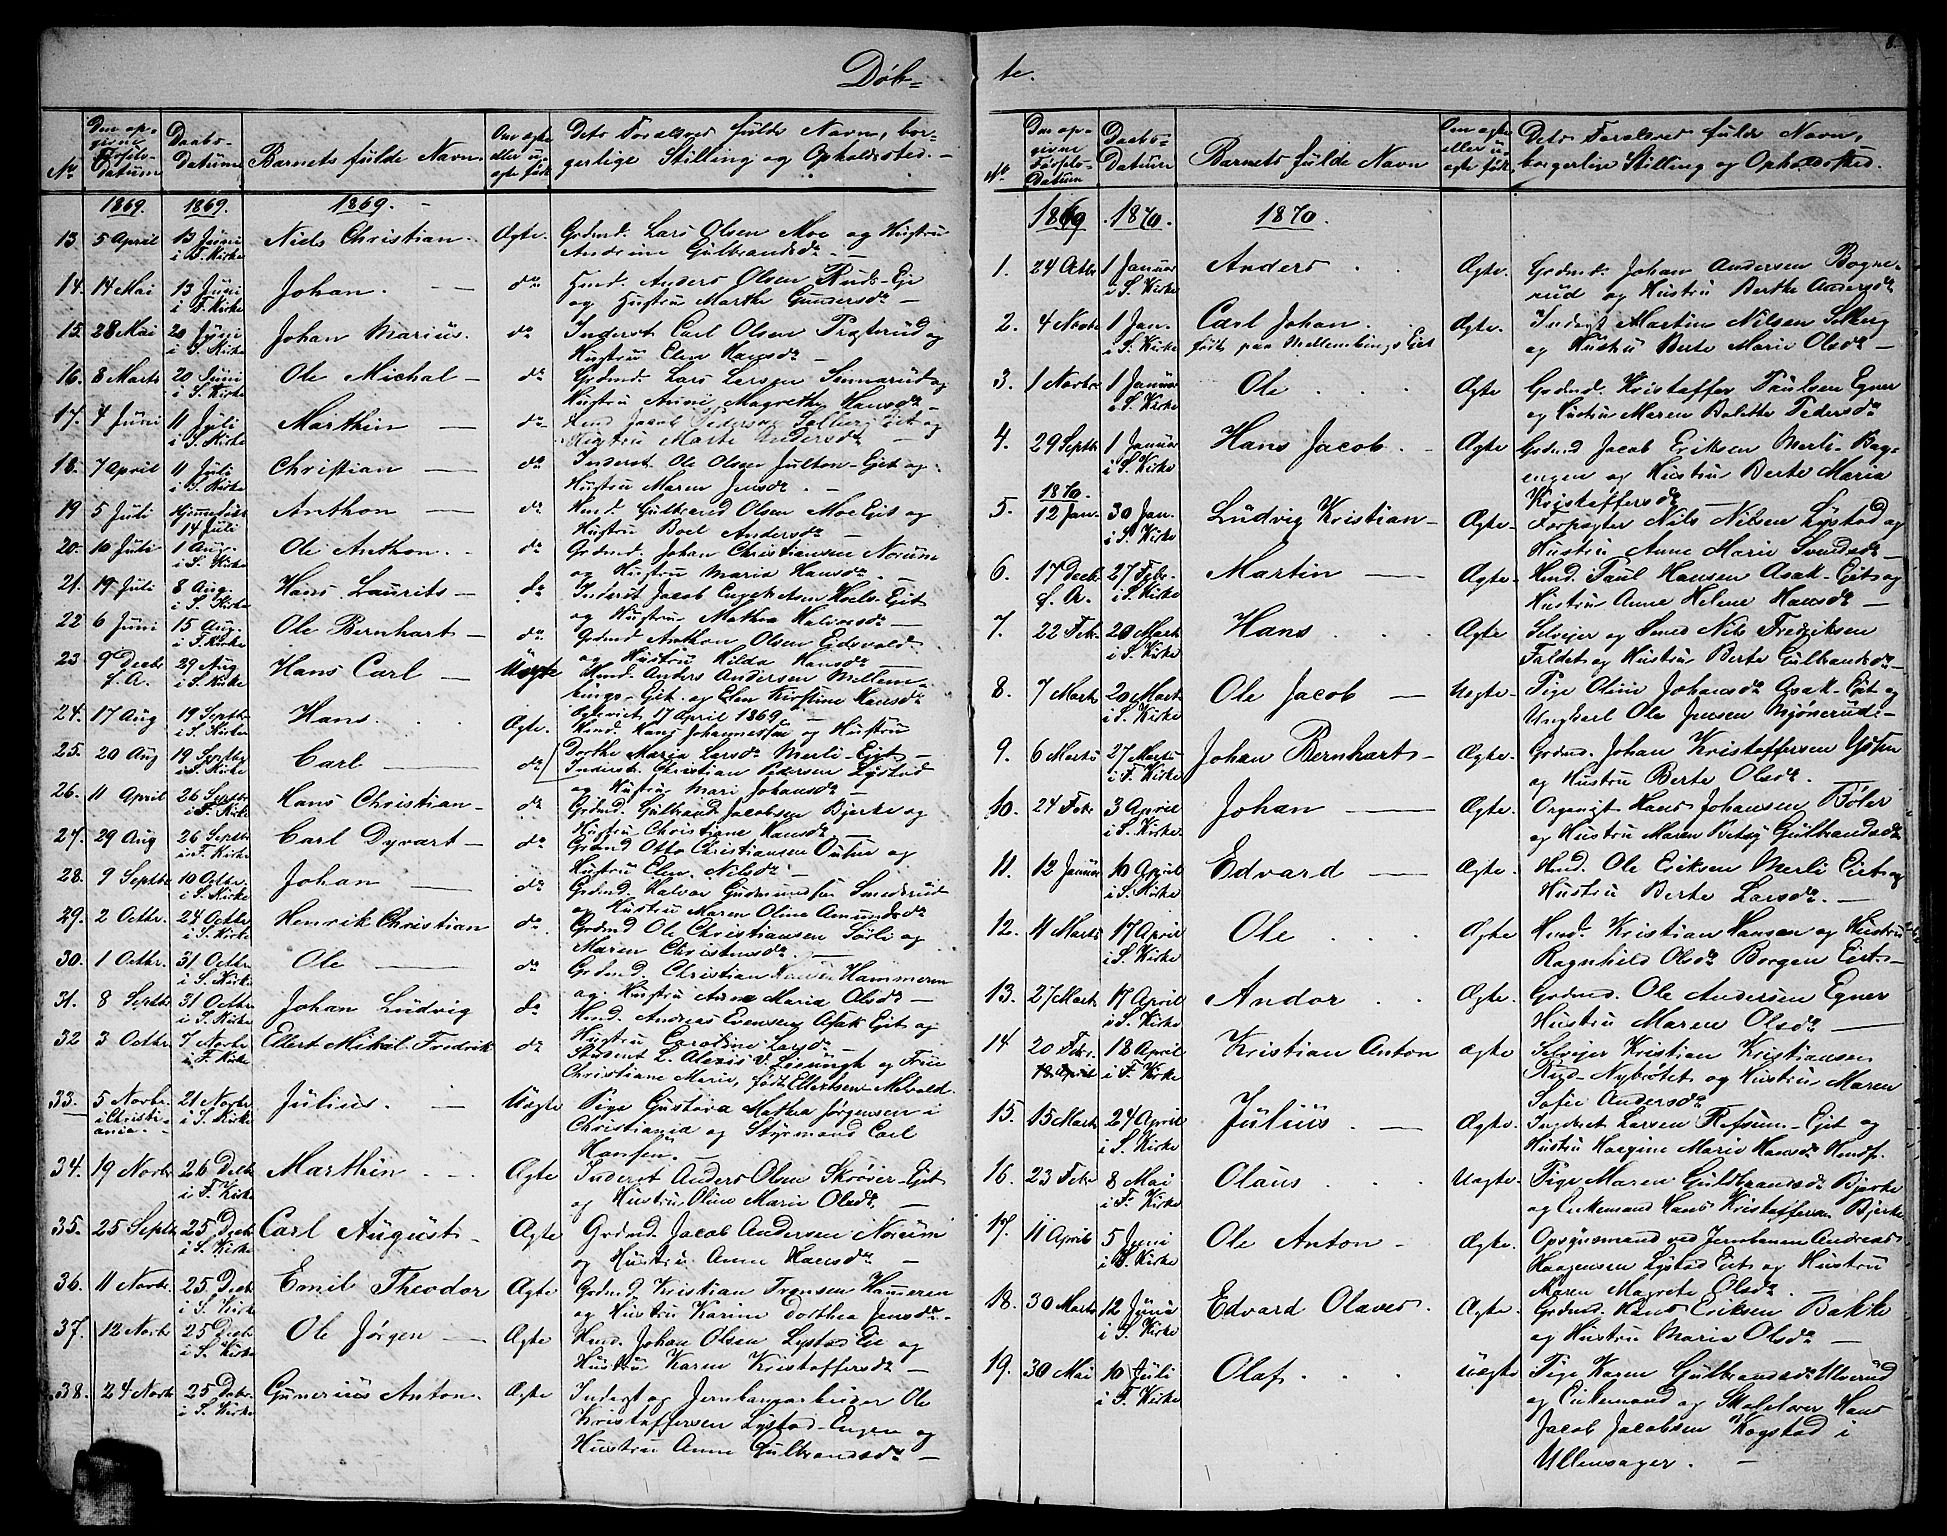 Døb=
Den op-
givne
Fødsels-
datum
Daabs-
Datum
Barnets fulde Navn.
Om ægte
eller u-
ægte født
Dets Forældres fulde Navn, bor-
gerlige Stilling og Opholdssted.
No
1869. 1869. 1869.
13 5 April 13 Juni Niels Christian. Ægte. Grdmd. Lars Olsen Moe og Hustru
Andrine Gulbrandsdr. —
14. 14 Mai 13 Juni i F. Kirke Johan. — do Husmd. Anders Olsen Ruds-Eje
og Hustru Marthe Gundersdr —
15. 28 Mai 20 i S. Kirke Johan Marius. do Inderst Carl Olsen Træterud og
Hustru Elen Hansdr —
16. 8 Marts 20 Juni i S. Kirke Ole Michal — do Grdmd. Lars Larsen
Hustru Anne Magrethe Hansdr —
17. 4 Juni 11 Juli i S. Kirke Marthin — do Jacob Pedersen Solberg Eit og
Hustru Marte Andersdr —
18. 7 April 11 Juli i S. Kirke Christian — do Inderst Ole Olsen Julton-Ejet og
Hustru Maren Jensdr. —
19 5 Juli Hjemmedøbt 14 Juli Anthon — do Gulbrand Olsen Moe Ejet og
Hustru Boel Andersdr —
20. 10 Juli 1 Aug. i S. Kirke Ole Anthon. do Grdmd. Johan Christiansen Norum
og Hustru Maria Hansdr. —
21. 19 Juli 8 Aug. i S. Kirke Hans Laurits — do Inderst Jacob Engebretsen Hvels-Ejet
og Hustru Mathea Halvorsdr —
22 6 Juni 15 Aug. i F. Kirke Ole Bernhart — do Grdmd Anthon Olsen Eidsvold
og Hustru Hilda Hansdr —
23 9 Decbr f. A. 29 Aug i S. Kirke Hans Carl — Uægte Anders Andersen Mellem-
bings-Ejet og Elen Kirstine Hansdr
17 April 1869. —
24. 17 Aug 19 Septbr i S. Kirke Hans. Ægte. Hans Johannessen og Hustru
Dorthe Maria Larsdr Merli-Ejet —
25. 20 Aug 19 Septbr i S. Kirke Carl — do Inderst Christian Pedersen Lystad
og Hustru Mari Johansdr —
26. 11 April 26 Septbr i F. Kirke Hans Christian — do Grdmd. Gulbrand Jacobsen Bjerke og
Hustru Christiane Hansdr —
27. 29 Aug 26 Septbr i F. Kirke Carl Dyvart — do Grdmd Otto Christiansen og
Hustru Elen Nilsdr —
28. 9 Septbr 10 Octbr. i S. Kirke Johan — do Grdmd. Halvor Gudmundsen Smedsrud
og Hustru Maren Olina Amundsdr
29. 2 Octbr. 24 Octbr i S. Kirke Henrik Christian do Grdmd Ole Christiansen Sørli og
Maren Christensdr. —
30. 1 Octbr. 31 Octbr. i S. Kirke Ole — do Grdmd. Christian Hansen Hammeren
og Hustru Anne Maria Olsdr —
31. 8 Septbr 31 Octbr i S. Kirke Johan Ludvig do Andreas Evensen Asak Ejet og
Hustru Caroline Larsdr —
32 3 Octbr. 7 Novbr i F. Kirke Ellert Mikal Fredrik do Student L. Alexis V. og Frue
Christiane Marie, født Ellertsen-Melvold.
33. 5 Novbr. i Christi-ania. 21 Novbr i S. Kirke Julius. — Uægte Pige Gustava Mathea Jørgensen i
Christiania og Styrmand Carl
Hansen. —
34. 19 Novbr 26 Decbr i F. Kirke Marthin — Ægte Inderst Anders Olsen Skrøver-Ejet
og Hustru Oline Marie Olsdr. —
35. 25 Septbr 25 Decbr i S. Kirke Carl August — Ægte Grdmd. Jacob Andersen Norum
og Hustru Anne Hansdr —
36. 11 Novbr. 25 Decbr i S. Kirke Emil Theodor Ægte Grdmd Kristian Transen Hameren
og Hustru Karine Dorthea Jensdr.
37. 12 Novbr 25 Decbr i S. Kirke Ole Jørgen — Ægte Husmd. Johan Olsen Lystad Eie og
Hustru Karen Kristoffersdr —
38. 24 Novbr 25 Debr. i S. Kirke Gunerius Anton. Ægte Inderst og Jernbanearbeider Ole
Kristoffersen Lystad-Engen og
Hustru Anne Gulbrandsdr —
te.
8.
No
Den op-
givne
Fødsels-
Datum
Daabs-
Datum
Barnets fulde Navn
Om ægte
eller u-
ægte født.
Dets Forældres fulde Navn,
borgerlige Stilling og Opholdssted.
1869 1870. 1870.
1. 24 Octbr 1 Januar i S. Kirke Anders Ægte. Grdmd. Johan Andersen Bogne-
rud og Hustru Berthe Andersdr
2. 4 Novbr 1 Jan. i S. Kirke Carl Johan. født paa Mellembings Ejet Ægte. Inderst Martin Nilsen Solberg
og Hustru Berte Marie Olsdr —
3. 1 Novbr 1 Januar i S. Kirke Ole Ægte Grdmd. Kristoffer Paulsen Egner
og Hustru Maren Bolette Pedersdr
4. 29 Septbr 1 Januar i S. Kirke Hans Jacob. Ægte Grdmd Jacob Eriksen Merli-Bag-
engen og Hustru Berte Maria
Kristoffersdr —
5. 1870. 12 Jan. 30 Jan. i S. Kirke Ludvig Kristian — Ægte. Forpagter Nils Nilsen Lystad og
Hustru Anne Marie Svendsdr —
6. 17 Decb. f. A. 27 Febr. i S. Kirke Martin — Ægte. Husmd. Paul Hansen Asak-Eit og
Hustru Anne Helene Hansdr —
7. 22 Febr. 20 Marts i S. Kirke Hans Ægte Selvejer og Smed Nils Fredriksen
Faldet og Hustru Berte Gulbrandsdr
8. 7 Marts 20 Marts i S. Kirke Ole Jacob — Uægte. Pige Oline Johansdr Asak-Ejet og
Ungkarl Ole Jensen Mjønerud.
9. 6 Marts 27 Marts i F. Kirke Johan Bernhart — Ægte. Grdmd. Johan Kristoffersen
og Hustru Berte Olsdr.
10. 24 Febr 3 April i S. Kirke Johan — Ægte. Organist Hans Johansen Bøler
og Hustru Maren Betsy Gulbrandsdr
11. 12 Januar 10 April i S. Kirke Edvard — Ægte. Husmd. Ole Eriksen Merli Eit og
Hustru Berte Larsdr. —
12. 11 Marts 17 April i S. Kirke Ole Ægte Husmd. Kristian Hansen og Hustru
Ragnhild Olsdr Borgen Eit
13. 27 Marts 17 April i S. Kirke Andor Ægte. Grdmd. Ole Andersen Egner
Hustru Maren Olsdr —
14 20 Febr. 18 April i F. Kirke Kristian Anton ægte Selvejer Kristian Kristiansen
Rud-Nybrøtet og Hustru Maren
Sofie Andersdr
15. 15 Marts 24 April i S. Kirke Julius. — Ægte. Inderst Larsen Refsum-Ejet og
Hustru Haagine Marie Hansdr
16. 23 Febr 8 Mai i F. Kirke Olaus Uægte. Pige Maren Gulbrandsdr Bjerke
og Enkemand Hans Kristoffersen Bjerke
17. 11 April 5 Juni i S. Kirke Ole Anton — Ægte. Opsynsmand ved Jernbanen Andreas
Haagensen Lystad Eit og Hustru
Maren Magrete Olsdr. —
18. 30 Marts 12 Juni i S. Kirke Edvard Olaves. Ægte. Grdmd. Hans Eriksen Bakke
og Hustru Maria Olsdr —
19. 30 Mai 10 Juli i F. Kirke Olaf. uægte Pige Karen Gulbrandsdr Ulverud
og Enkemand og Skolelærer Hans
Jacob Jacobsen Kogstad i
Ullensager. —